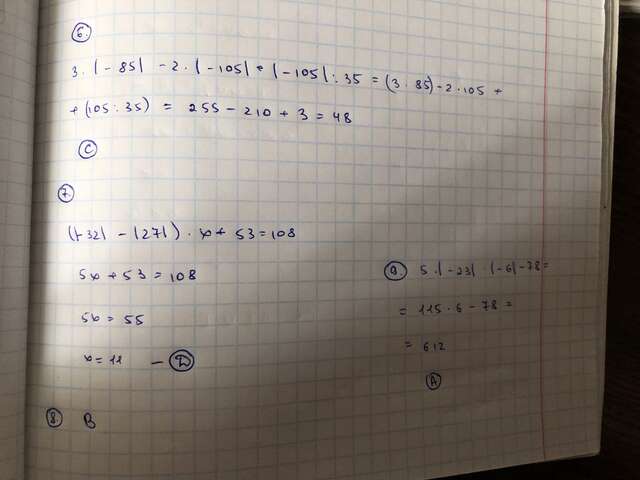 6.
3 · |-85| - 2 · |-105| + |-105| : 35 = (3 · 85) - 2 · 105 +
+ (105 : 35) = 255 - 210 + 3 = 48
C
7
(|-32| - |27|) · x + 53 = 108
5x + 53 = 108
5x = 55
x = 11 - D
8 B
9. 5 · |-23| · |-6| - 78 =
= 115 · 6 - 78 =
= 612
A